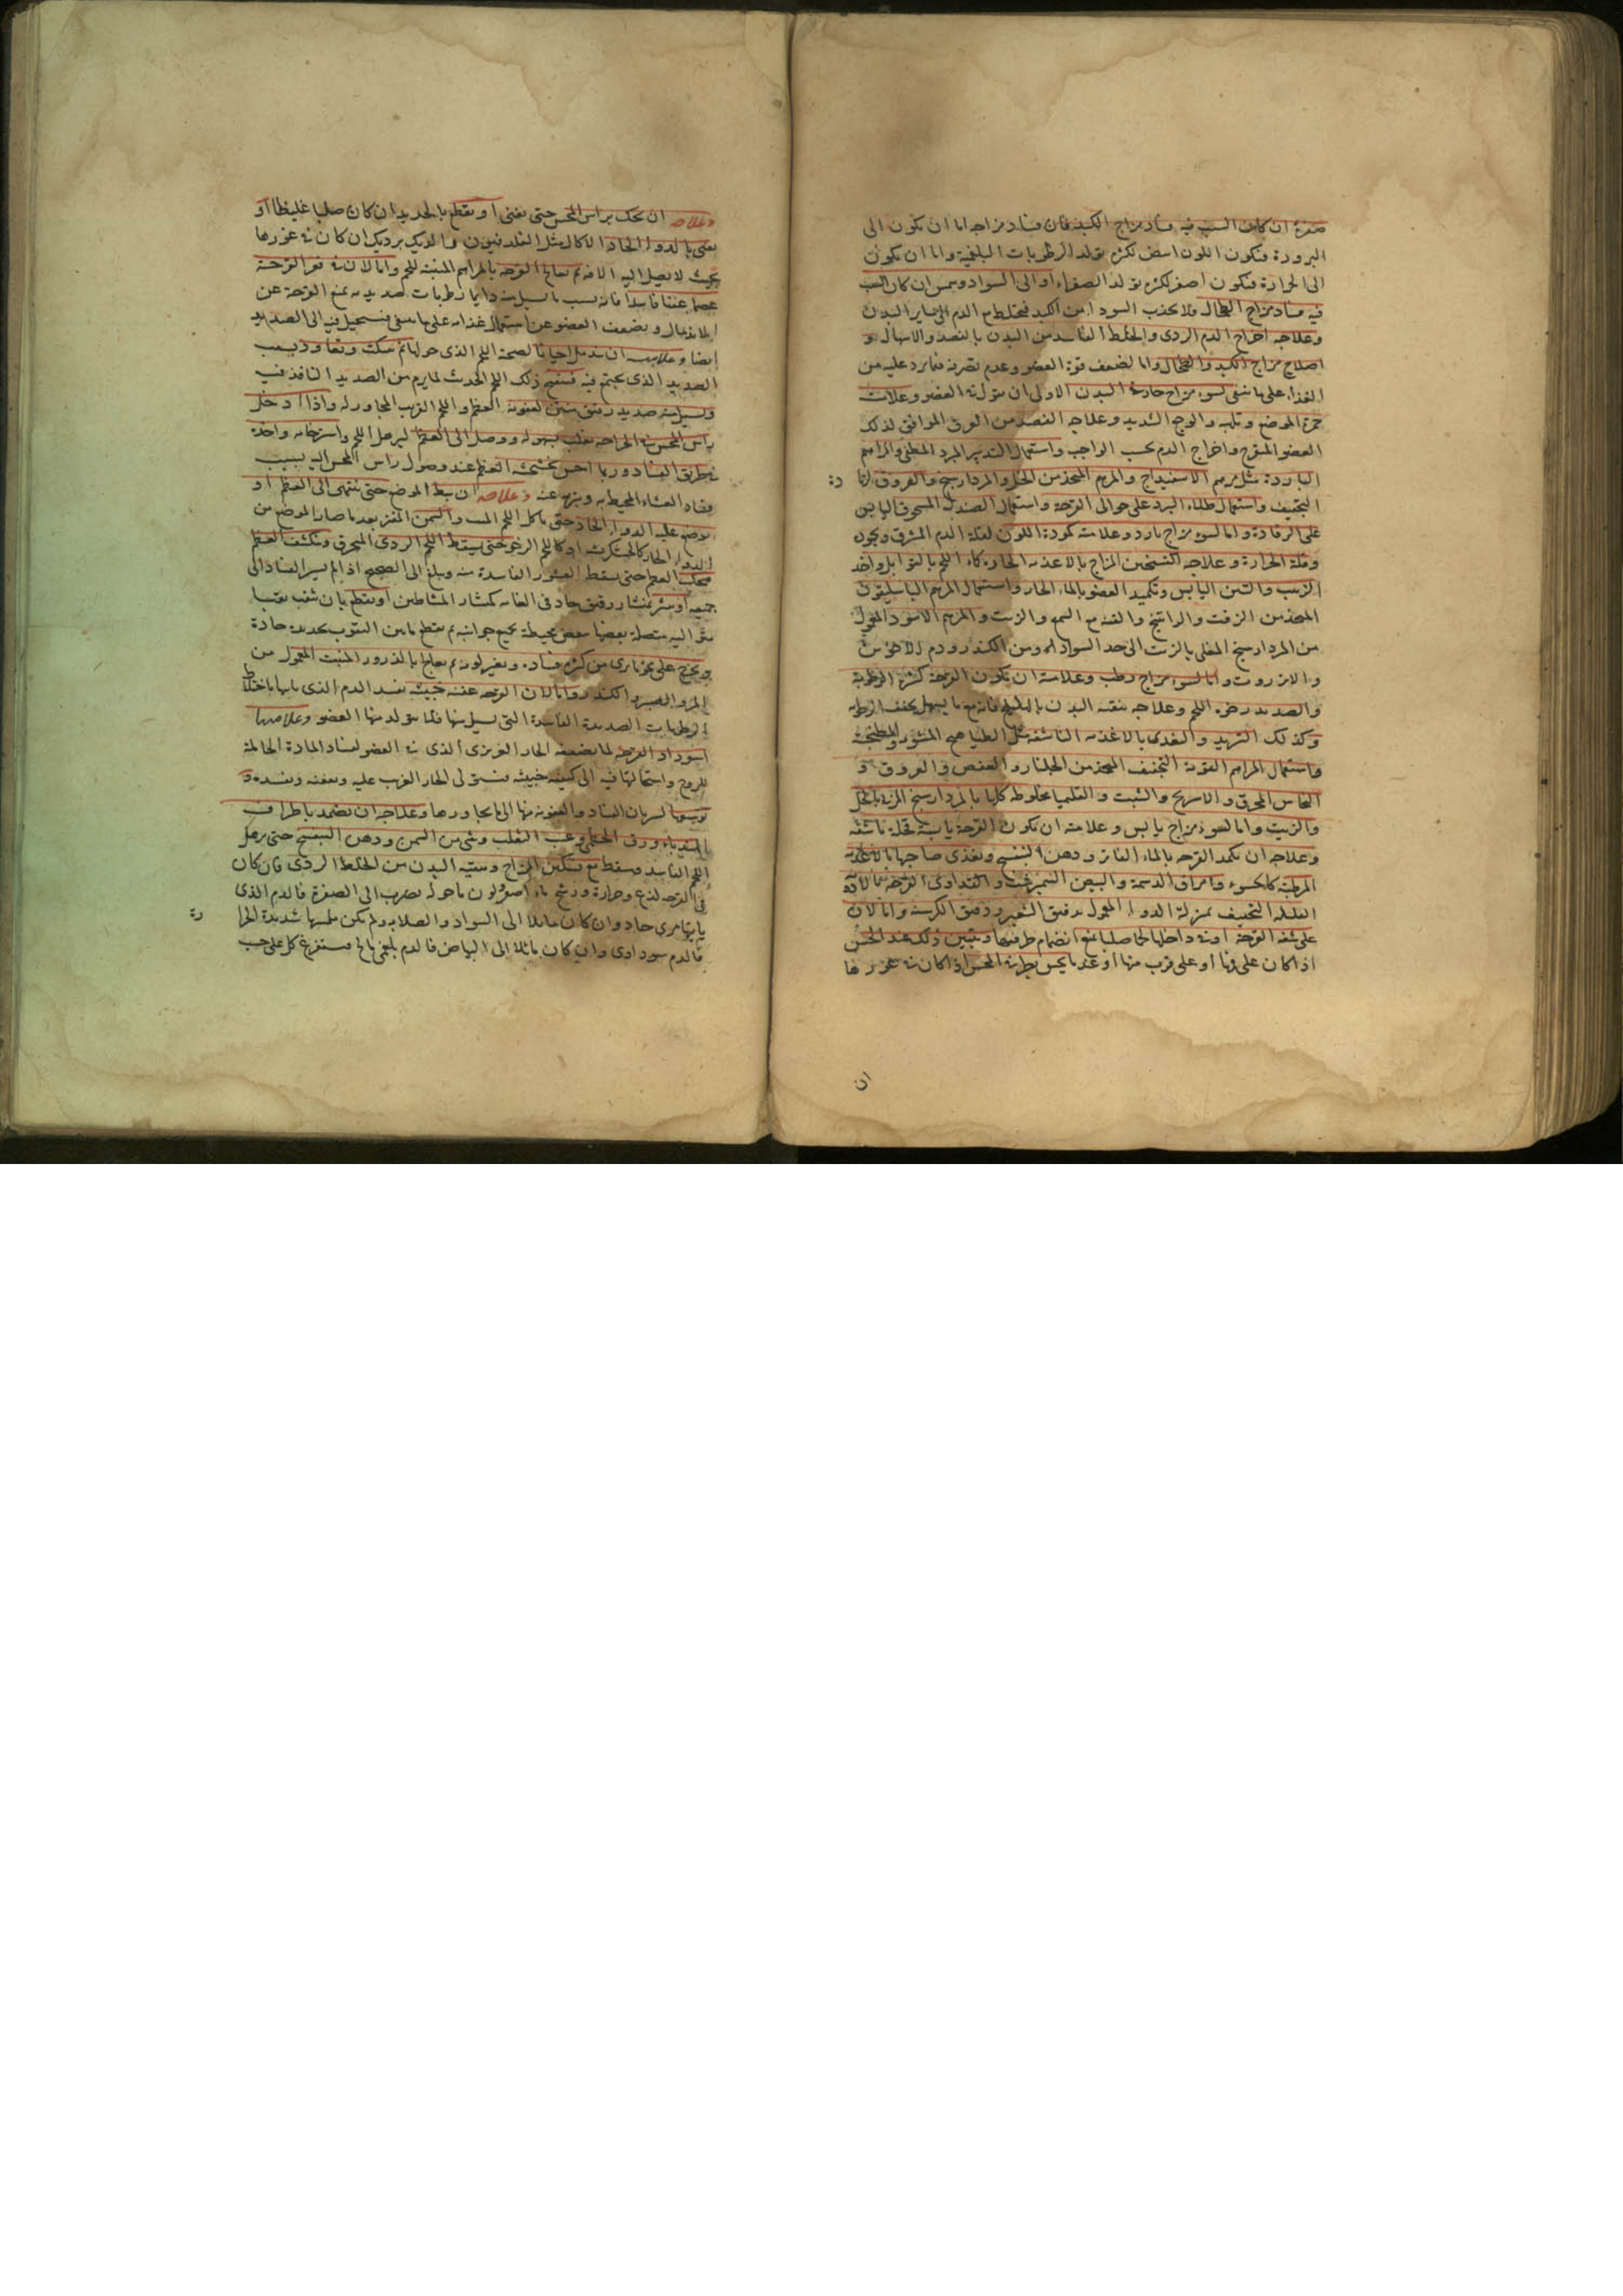 صفرة ان كان السبب فيه فساد مزاج الكبد فان فساد مزاجها اما ان تكون الى
البرودة فيكون اللون ابيض لكثرة تولد الرطوبات البلغمية واما ان يكون
الى الحرارة فيكون اصفر لكثرة تولد الصفراء او الى السواد ان كان السبب
فيه فساد مزاج الطحال فلا يجذب السوداء من الكبد فيختلط مع الدم الى ساير البدن
وعلاجه اخراج الدم الردى والخلط الفاسد من البدن بالفصد والاسهال و
اصلاح مزاج الكبد والطحال واما لضعف قوة العضو وعدم تصرفه فيما يرد عليه من
الغذاء على ما ينبغى لسوء مزاج حار فى البدن الاولى ان يقول فى العضو وعلامته
حمرة الموضع وتلهبه والوجع الشديد وعلاجه الفصد من العرق الموافق لذلك
العضو المتقرح واخراج الدم بحسب الواجب واستعمال التدبير المبرد المطفى والمراهم
الباردة مثل مرهم الاسفيداج والمرهم المتخذ من الخل والمرداسنج والعروق
التجفيف واستعمال طلاء المبرد على حوالى القرحة واستعمال الصندل المسحوق اليابس
على الرفادة واما لسوء مزاج بارد وعلامته كمودة اللون لقلة الدم المشرق
وقلة الحرارة وعلاجه تسخين المزاج بالاغذية الحارة كماء اللحم بالتوابل واخذ
الزبيب والتين اليابس وتكميد العضو بالماء الحار واستعمال المرهم الباسليقون
المتخذ من الزفت والراتينج والقنه مع الشمع والزيت والمرهم الاسود المعمول
من المرداسنج المغلى بالزيت الى حد السواد ومن الكندر ودم الاخوين
والانزروت واما لسوء مزاج رطب وعلامته ان يكون القرحة كثيرة الرطوبة
والصديد رخوة اللحم وعلاجه تنقية البدن بالهليلج فانه مع ما يسهل يجفف الرطوبة
وكذلك التربد والتغذى بالاغذية الناشفة مثل الطياهيج المشوى والمطجنة
واستعمال المراهم القوية التجفيف المتخذ من الجلنار والعفص والعروق و
النحاس المحرق والاسرنج والشبت والقليميا مخلوطة كلها بالمرداسنج المربى بالخل
والزيت واما لسوء مزاج يابس وعلامته ان تكون القرحة يابسة قحلة ناشفة
وعلاجه ان تكمد القرحة بالماء الفاتر ودهن البنفسج وتغذى صاحبها بالاغذية
المرطبة كالحسو وامراق الدسمة والبيض النيمبرشت والتداوى القرحة بالادوية
القليلة التجفيف بمنزلة الدواء المعمول بدقيق الشعير ودقيق الكرسنة واما لان
على شفة القرحة او فى داخلها لحما صلبا يمنع انضمام طرفيها ويتبين ذلك عند الحس
اذا كان على فها او على قرب منها او عند ما يحس بطرف المجس اذا كان فى غورها
ان
وعلاجه ان يحك براس المجس حتى يفنى او يقطع بالحديد ان كان صلبا غليظا او
يفنى بالدواء الحاد الاكال مثل الفلدفيون والديك برديك ان كان فى غورها
بحيث لا يصل اليه الالة ثم يعالج القرحة بالمراهم المنبتة للحم واما لان فى قعر القرحة
عظما عفنا فاسدا فانه بسبب ما يسيل منه دايما رطوبات صديدية يمنع القرحة عن
الاندمال ويضعف العضو عن استعمال غذائه على ما ينبغى فيستحيل فيه الى الصديد
ايضا وعلامته ان تندمل احيانا لصحة اللحم الذى حولها ثم ينكث وتعاود بسبب
الصديد الذى يجتمع فيه فينتفخ ذلك اللحم الحديث لما يرم من الصديد النافذ فيه
ويسيل منه صديد رقيق منتن لعفونة العظم واللحم القريب المجاور له واذا ادخل
راس المجس فى الجراحة تغلب بسهولة ووصل الى العظم لترهل اللحم واسترخائه واخذه
بطريق الفساد وربما احس بخشخشة العظم عند وصول راس المجس اليه بسبب
فساد الغشاء المحيط به وتبريه عنه وعلاجه ان يبط الموضع حتى ينتهى الى العظم او
يوضع عليه الدواء الحاد حتى ياكل اللحم الميت والسمن المفتر بعد ما صار الموضع من
الدواء الحار كالخشكريشة او كاللحم الرخو حتى يسقط اللحم الردى المحرق وينكشف العظم
فيحك العظم حتى يسقط القشور الفاسدة منه ويبلغ الى الصحيح اذا لم يسر الفساد الى
جميعه او ينشر بمنشار دقيق حاد فى الغاية كمنشار المشاطين او يقطع بان يثقب ثقبا
متوالية متصلة بعضها ببعض محيطة بجميع جوانبه ثم يقطع ما بين الثقوب بحديدة حادة
ويخرج على نحو ما يرى من كثرة فساده وتغير لونه ثم يعالج بالذرور المنبت المعمول من
المر والصبر والكندر واما لان القرحة عفنة خبيثة يفسد الدم الذى ياتيها باختلاط
الرطوبات الصديدية الفاسدة التى يسيل منها فلما يتولد منها العضو وعلامتها
اسوداد القرحة لما يضعف الحار الغريزى الذى فى العضو لفساد المادة الحاملة
للروح واستحالتها فيه الى كيفية خبيثة فيستولى الحار الغريب عليه ويعفنه ويفسده و
توسعها لسريان الفساد والعفونة منها الى ما يجاورها وعلاجه ان يضمد باطراف
الهندباء وورق الخطمى وعنب الثعلب وشى من السمن ودهن البنفسج حتى يرهل
اللحم الفاسد ويسقط مع تسكين المزاج وتنقية البدن من الخلط الردى فان كان
فى القرحة لذع وحرارة ورشح ماء اصفر ولون ما حوله يضرب الى الصفرة فالدم الذى
ياتيها مرى حاد وان كان مايلا الى السواد والصلابة ولم يكن ملمسها شديدة الحرا
فالدم سوداوى وان كان مائلا الى البياض فالدم بلغمى مالح فيستفرغ كل على حسب
رة